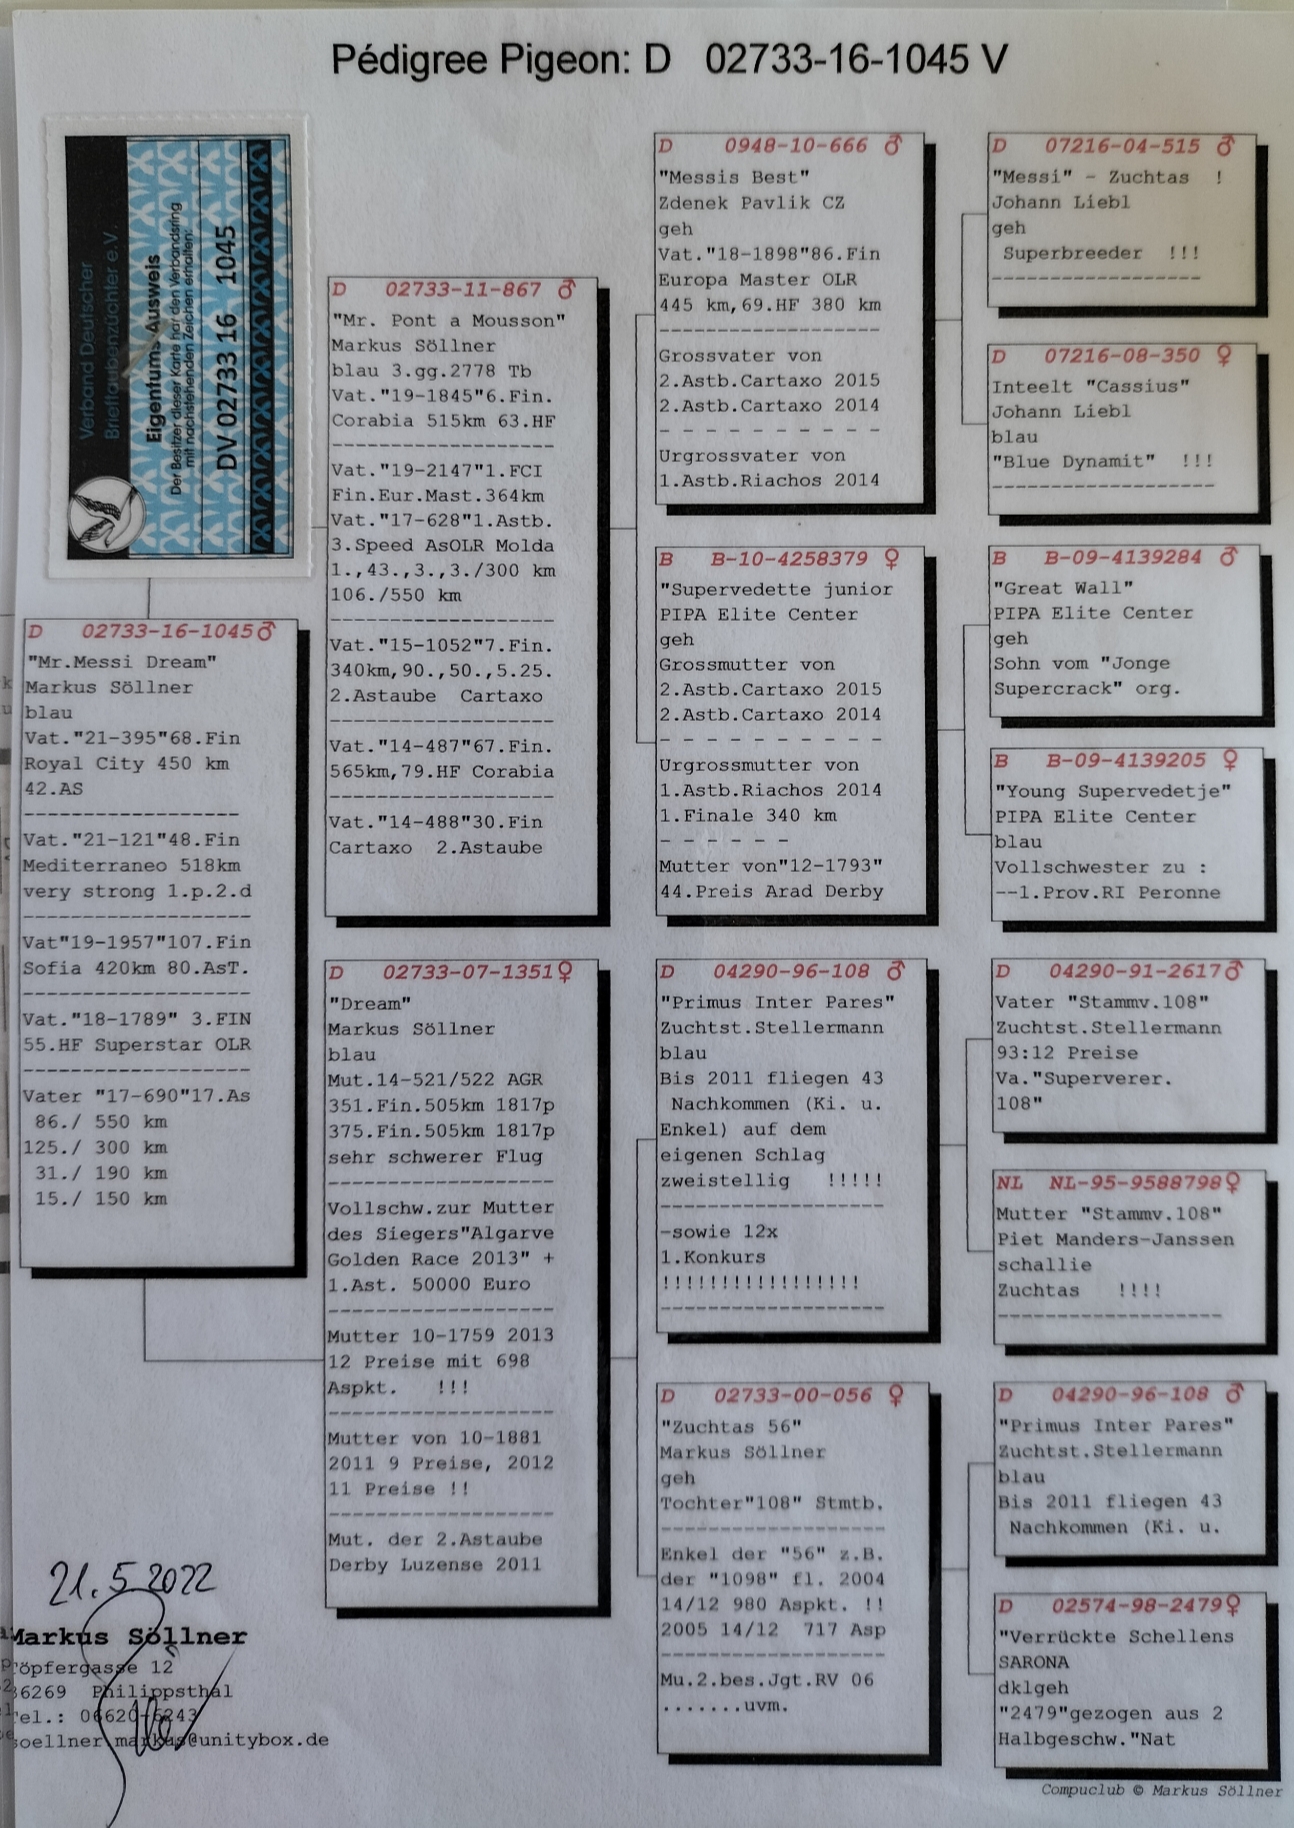 Pédigree Pigeon: D 02733-16-1045 V
Verband Deutscher
Brieftaubenzüchter e.V.
Eigentums-Ausweis
Der Besitzer dieser Karte hat den Verbandsring
mit nachstehenden Zeichen erhalten:
DV 02733 16 1045
D 02733-16-1045 ♂
"Mr.Messi Dream"
Markus Söllner
blau
Vat."21-395"68.Fin
Royal City 450 km
42.AS
------------------
Vat."21-121"48.Fin
Mediterraneo 518km
very strong 1.p.2.d
-------------------
Vat"19-1957"107.Fin
Sofia 420km 80.AsT.
-------------------
Vat."18-1789" 3.FIN
55.HF Superstar OLR
-------------------
Vater "17-690"17.As
86./ 550 km
125./ 300 km
31./ 190 km
15./ 150 km
D 02733-11-867 ♂
"Mr. Pont a Mousson"
Markus Söllner
blau 3.gg.2778 Tb
Vat."19-1845"6.Fin.
Corabia 515km 63.HF
-------------------
Vat."19-2147"1.FCI
Fin.Eur.Mast.364km
Vat."17-628"1.Astb.
3.Speed AsOLR Molda
1.,43.,3.,3./300 km
106./550 km
-------------------
Vat."15-1052"7.Fin.
340km,90.,50.,5.25.
2.Astaube Cartaxo
-------------------
Vat."14-487"67.Fin.
565km,79.HF Corabia
-------------------
Vat."14-488"30.Fin
Cartaxo 2.Astaube
D 02733-07-1351 ♀
"Dream"
Markus Söllner
blau
Mut.14-521/522 AGR
351.Fin.505km 1817p
375.Fin.505km 1817p
sehr schwerer Flug
-------------------
Vollschw.zur Mutter
des Siegers"Algarve
Golden Race 2013" +
1.Ast. 50000 Euro
-------------------
Mutter 10-1759 2013
12 Preise mit 698
Aspkt. !!!
-------------------
Mutter von 10-1881
2011 9 Preise, 2012
11 Preise !!
-------------------
Mut. der 2.Astaube
Derby Luzense 2011
D 0948-10-666 ♂
"Messis Best"
Zdenek Pavlik CZ
geh
Vat."18-1898"86.Fin
Europa Master OLR
445 km,69.HF 380 km
-------------------
Grossvater von
2.Astb.Cartaxo 2015
2.Astb.Cartaxo 2014
- - - - - - - - - -
Urgrossvater von
1.Astb.Riachos 2014
B B-10-4258379 ♀
"Supervedette junior
PIPA Elite Center
geh
Grossmutter von
2.Astb.Cartaxo 2015
2.Astb.Cartaxo 2014
- - - - - - - - - -
Urgrossmutter von
1.Astb.Riachos 2014
1.Finale 340 km
- - - - - -
Mutter von"12-1793"
44.Preis Arad Derby
D 04290-96-108 ♂
"Primus Inter Pares"
Zuchtst.Stellermann
blau
Bis 2011 fliegen 43
Nachkommen (Ki. u.
Enkel) auf dem
eigenen Schlag
zweistellig !!!!!
-------------------
-sowie 12x
1.Konkurs
!!!!!!!!!!!!!!!!!
-------------------
D 02733-00-056 ♀
"Zuchtas 56"
Markus Söllner
geh
Tochter"108" Stmtb.
-------------------
Enkel der "56" z.B.
der "1098" fl. 2004
14/12 980 Aspkt. !!
2005 14/12 717 Asp
-------------------
Mu.2.bes.Jgt.RV 06
.......uvm.
D 07216-04-515 ♂
"Messi" - Zuchtas !
Johann Liebl
geh
Superbreeder !!!
------------------
D 07216-08-350 ♀
Inteelt "Cassius"
Johann Liebl
blau
"Blue Dynamit" !!!
-------------------
B B-09-4139284 ♂
"Great Wall"
PIPA Elite Center
geh
Sohn vom "Jonge
Supercrack" org.
B B-09-4139205 ♀
"Young Supervedetje"
PIPA Elite Center
blau
Vollschwester zu :
--1.Prov.RI Peronne
D 04290-91-2617 ♂
Vater "Stammv.108"
Zuchtst.Stellermann
93:12 Preise
Va."Superverer.
108"
NL NL-95-9588798 ♀
Mutter "Stammv.108"
Piet Manders-Janssen
schallie
Zuchtas !!!!
-------------------
D 04290-96-108 ♂
"Primus Inter Pares"
Zuchtst.Stellermann
blau
Bis 2011 fliegen 43
Nachkommen (Ki. u.
D 02574-98-2479 ♀
"Verrückte Schellens
SARONA
dklgeh
"2479"gezogen aus 2
Halbgeschw."Nat
21.5.2022
Markus Söllner
Töpfergasse 12
36269 Philippsthal
Tel.: 06620-6243
soellner.markus@unitybox.de
Compuclub © Markus Söllner